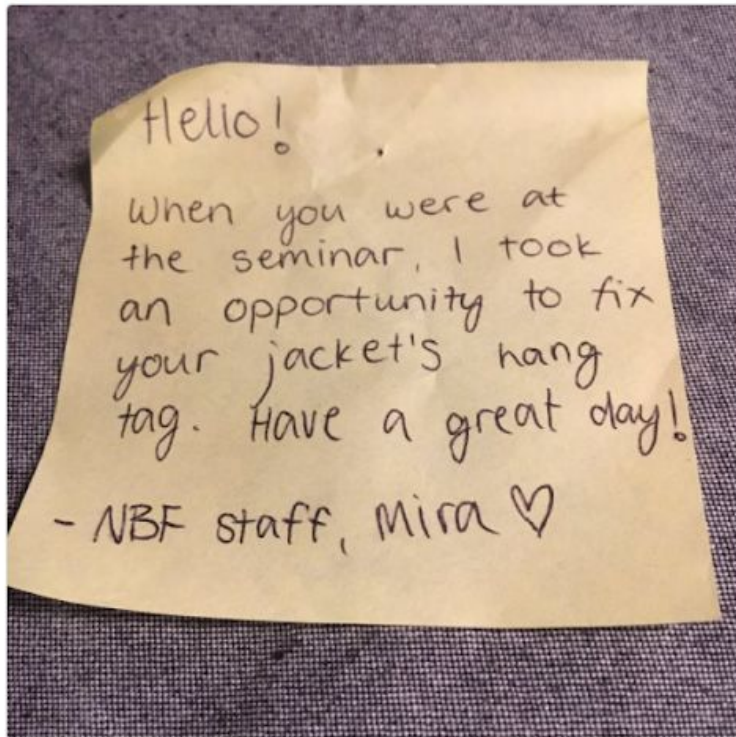 Hello!
When you were at
the seminar, I took
an opportunity to fix
your jacket's hang
tag. Have a great day!
- NBF staff, Mira ♡